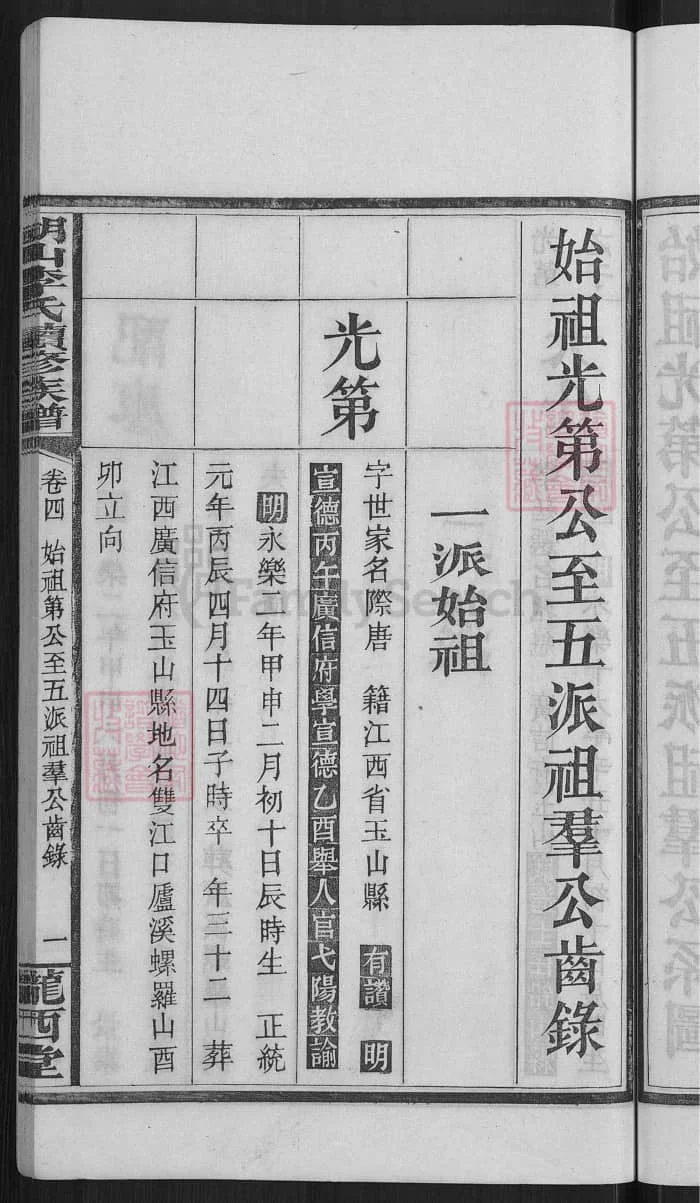 始祖光第公至五派祖羣公齒錄
一派始祖
光第
字世家名際唐 籍江西省玉山縣 有讚 明
宣德丙午廣信府學宣德乙酉舉人官弋陽教諭
明永樂二年甲申二月初十日辰時生 正統
元年丙辰四月十四日子時卒 年三十二 葬
江西廣信府玉山縣地名雙江口廬溪螺羅山酉
卯立向
山李氏續修族譜
卷四 始祖第公至五派祖羣公齒錄 一
隴西堂
FamilySearch